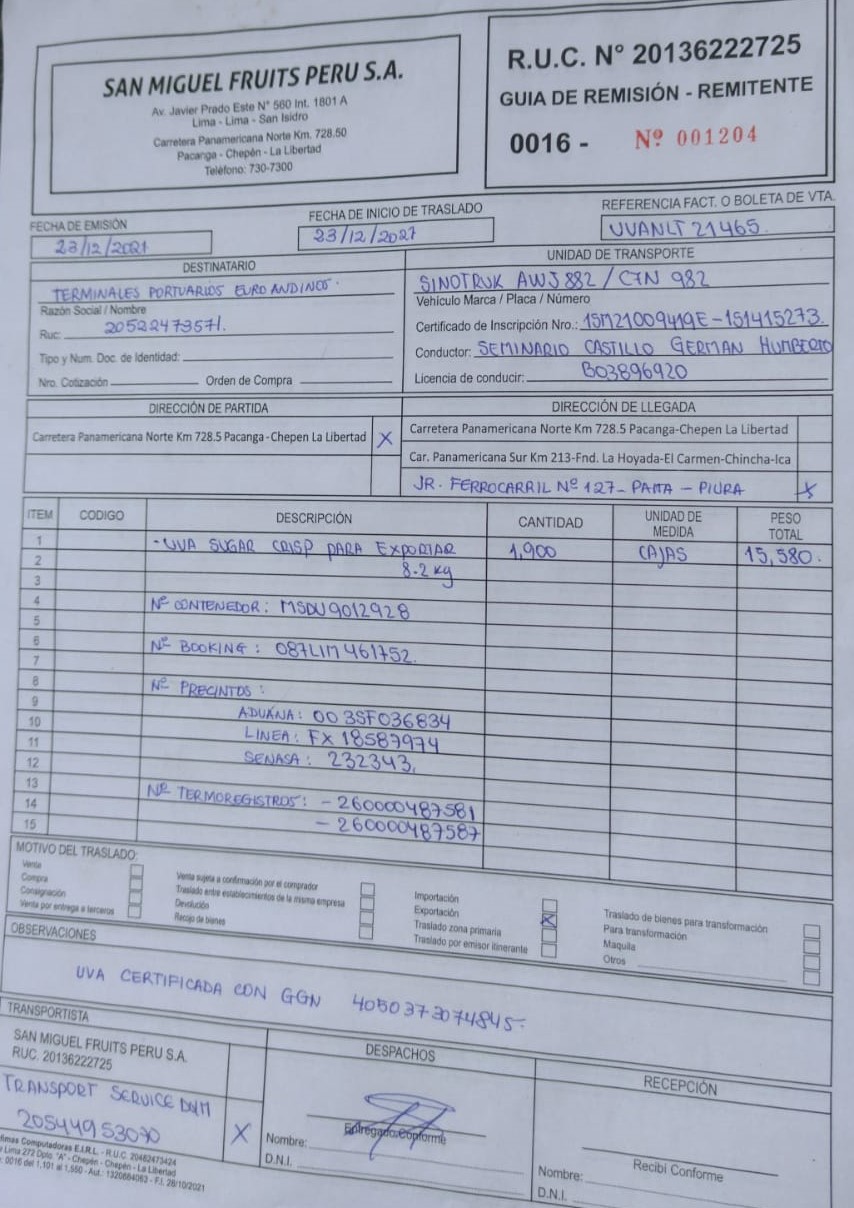 SAN MIGUEL FRUITS PERU S.A.
Av. Javier Prado Este N° 560 Int. 1801 A
Lima - Lima - San Isidro
Carretera Panamericana Norte Km. 728.50
Pacanga - Chepén - La Libertad
Teléfono: 730-7300
R.U.C. N° 20136222725
GUIA DE REMISIÓN - REMITENTE
0016 - Nº 001204
FECHA DE EMISIÓN
23/12/2021
FECHA DE INICIO DE TRASLADO
23/12/2021
REFERENCIA FACT. O BOLETA DE VTA.
UVANLT 21465.
DESTINATARIO
TERMINALES PORTUARIOS EUROANDINOS.
Razón Social / Nombre
Ruc: 20522473571.
Tipo y Num. Doc. de Identidad:
Nro. Cotización Orden de Compra
UNIDAD DE TRANSPORTE
SINOTRUK AWJ 882 / C7N 982
Vehículo Marca / Placa / Número
Certificado de Inscripción Nro.: 15M21009419E-151415273.
Conductor: SEMINARIO CASTILLO GERMAN HUMBERTO
Licencia de conducir: B03896920
DIRECCIÓN DE PARTIDA
Carretera Panamericana Norte Km 728.5 Pacanga-Chepen La Libertad X
DIRECCIÓN DE LLEGADA
Carretera Panamericana Norte Km 728.5 Pacanga-Chepen La Libertad
Car. Panamericana Sur Km 213-Fnd. La Hoyada-El Carmen-Chincha-Ica
JR. FERROCARRIL Nº 127 - PAITA - PIURA X
ITEM CODIGO DESCRIPCIÓN CANTIDAD UNIDAD DE MEDIDA PESO TOTAL
1 - UVA SUGAR CRISP PARA EXPORTAR 1,900 CAJAS 15,580.
2 8.2 kg
3
4 Nº CONTENEDOR: MSDU9012928
5
6 Nº BOOKING: 087LIM461752.
7
8 Nº PRECINTOS:
9 ADUANA: 003SF036834
10 LINEA: FX 18587974
11 SENASA: 232343.
12
13 Nº TERMOREGISTROS: - 260000487581
14 - 260000487587
15
MOTIVO DEL TRASLADO:
Venta
Compra
Consignación
Venta por entrega a terceros
Venta sujeta a confirmación por el comprador
Traslado entre establecimientos de la misma empresa
Devolución
Recojo de bienes
Importación
Exportación X
Traslado zona primaria
Traslado por emisor itinerante
Traslado de bienes para transformación
Para transformación
Maquila
Otros
OBSERVACIONES
UVA CERTIFICADA CON GGN 4050373074845.
TRANSPORTISTA
SAN MIGUEL FRUITS PERU S.A.
RUC. 20136222725
TRANSPORT SERVICE D&M
20544953030 X
DESPACHOS
Entregado Conforme
Nombre:
D.N.I.
RECEPCIÓN
Recibí Conforme
Nombre:
D.N.I.
Computadoras E.I.R.L. - R.U.C. 20482473424
Lima 272 Dpto. "A" - Chepén - Chepén - La Libertad
0016 del 1,101 al 1,550 - Aut.: 1320684082 - F.I. 28/10/2021